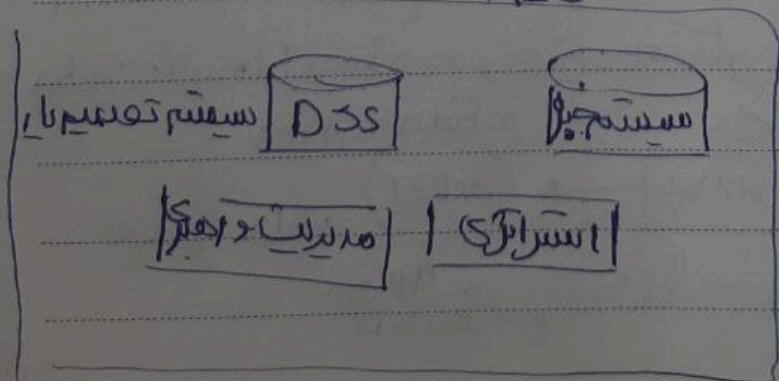 سیستم DSS سیستم تصمیم یار
استراتژی مدیریت و رهبری